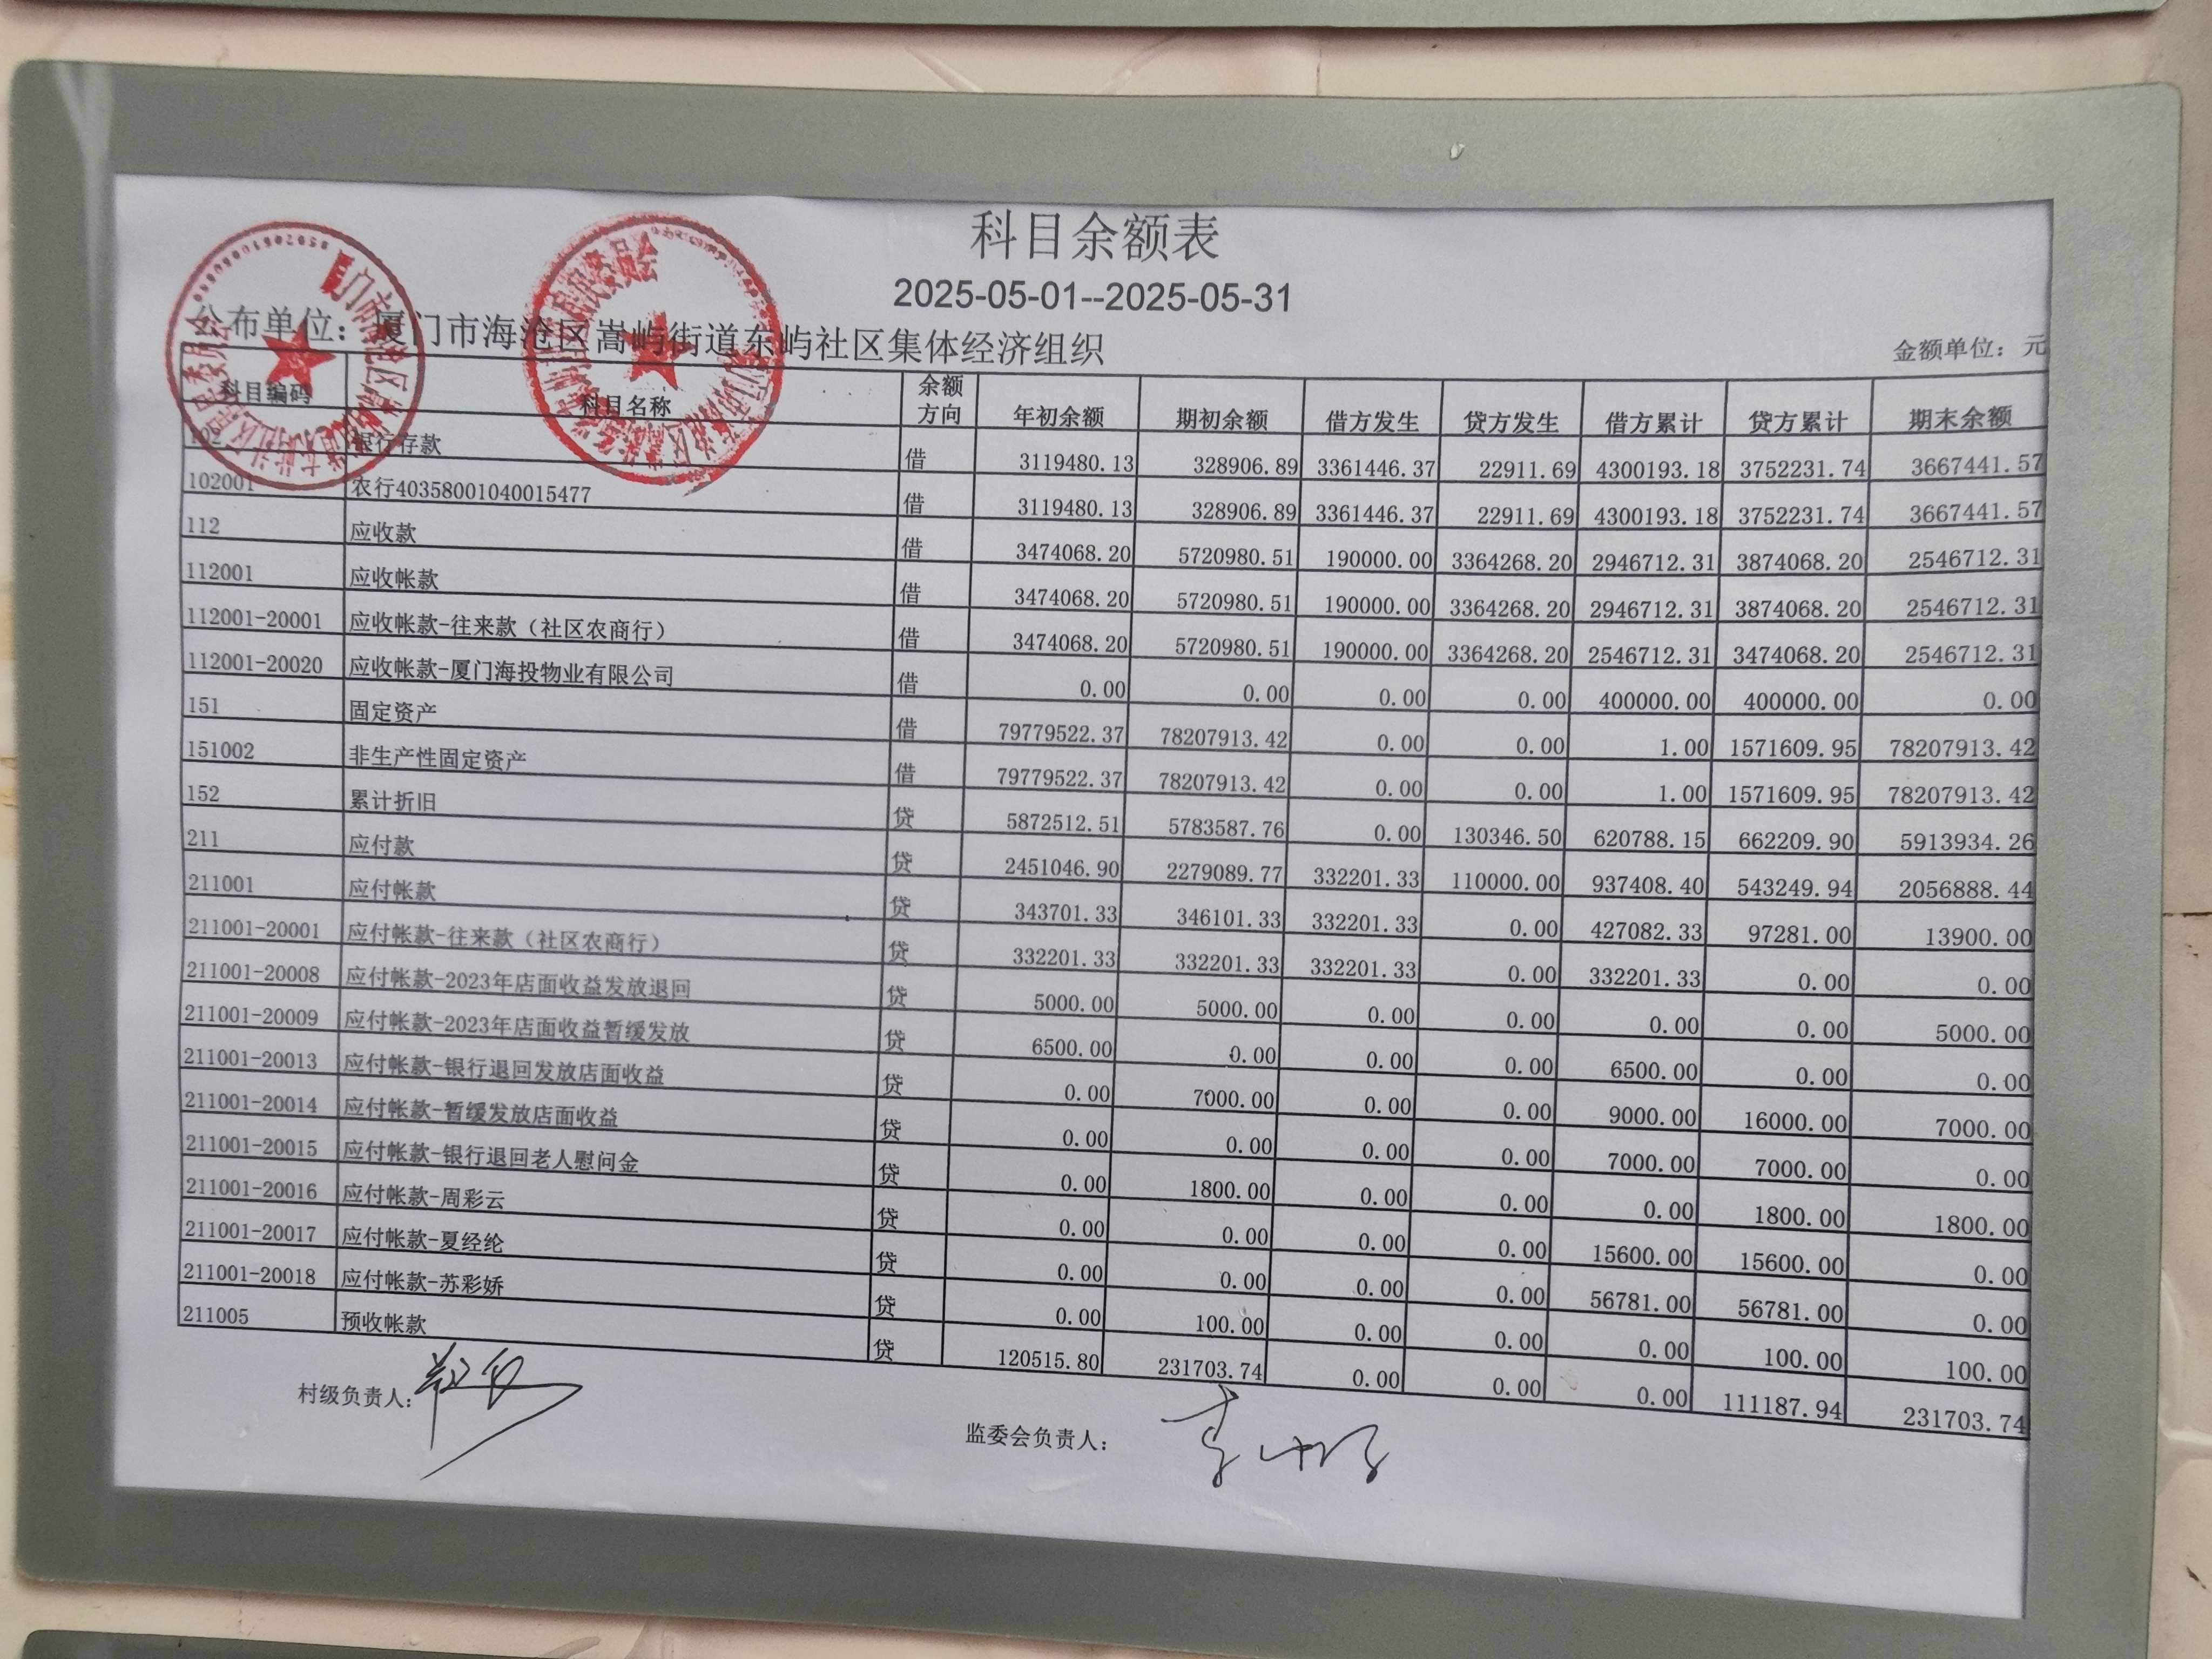 科目余额表
2025-05-01--2025-05-31
公布单位：厦门市海沧区嵩屿街道东屿社区集体经济组织 金额单位：元
科目编码 科目名称 余额方向 年初余额 期初余额 借方发生 贷方发生 借方累计 贷方累计 期末余额
102 银行存款 借 3119480.13 328906.89 3361446.37 22911.69 4300193.18 3752231.74 3667441.57
102001 农行40358001040015477 借 3119480.13 328906.89 3361446.37 22911.69 4300193.18 3752231.74 3667441.57
112 应收款 借 3474068.20 5720980.51 190000.00 3364268.20 2946712.31 3874068.20 2546712.31
112001 应收帐款 借 3474068.20 5720980.51 190000.00 3364268.20 2946712.31 3874068.20 2546712.31
112001-20001 应收帐款-往来款（社区农商行） 借 3474068.20 5720980.51 190000.00 3364268.20 2546712.31 3474068.20 2546712.31
112001-20020 应收帐款-厦门海投物业有限公司 借 0.00 0.00 0.00 0.00 400000.00 400000.00 0.00
151 固定资产 借 79779522.37 78207913.42 0.00 0.00 1.00 1571609.95 78207913.42
151002 非生产性固定资产 借 79779522.37 78207913.42 0.00 0.00 1.00 1571609.95 78207913.42
152 累计折旧 贷 5872512.51 5783587.76 0.00 130346.50 620788.15 662209.90 5913934.26
211 应付款 贷 2451046.90 2279089.77 332201.33 110000.00 937408.40 543249.94 2056888.44
211001 应付帐款 贷 343701.33 346101.33 332201.33 0.00 427082.33 97281.00 13900.00
211001-20001 应付帐款-往来款（社区农商行） 贷 332201.33 332201.33 332201.33 0.00 332201.33 0.00 0.00
211001-20008 应付帐款-2023年店面收益发放退回 贷 5000.00 5000.00 0.00 0.00 0.00 0.00 5000.00
211001-20009 应付帐款-2023年店面收益暂缓发放 贷 6500.00 0.00 0.00 0.00 6500.00 0.00 0.00
211001-20013 应付帐款-银行退回发放店面收益 贷 0.00 7000.00 0.00 0.00 9000.00 16000.00 7000.00
211001-20014 应付帐款-暂缓发放店面收益 贷 0.00 0.00 0.00 0.00 7000.00 7000.00 0.00
211001-20015 应付帐款-银行退回老人慰问金 贷 0.00 1800.00 0.00 0.00 0.00 1800.00 1800.00
211001-20016 应付帐款-周彩云 贷 0.00 0.00 0.00 0.00 15600.00 15600.00 0.00
211001-20017 应付帐款-夏经纶 贷 0.00 0.00 0.00 0.00 56781.00 56781.00 0.00
211001-20018 应付帐款-苏彩娇 贷 0.00 100.00 0.00 0.00 0.00 100.00 100.00
211005 预收帐款 贷 120515.80 231703.74 0.00 0.00 0.00 111187.94 231703.74
村级负责人：
监委会负责人：